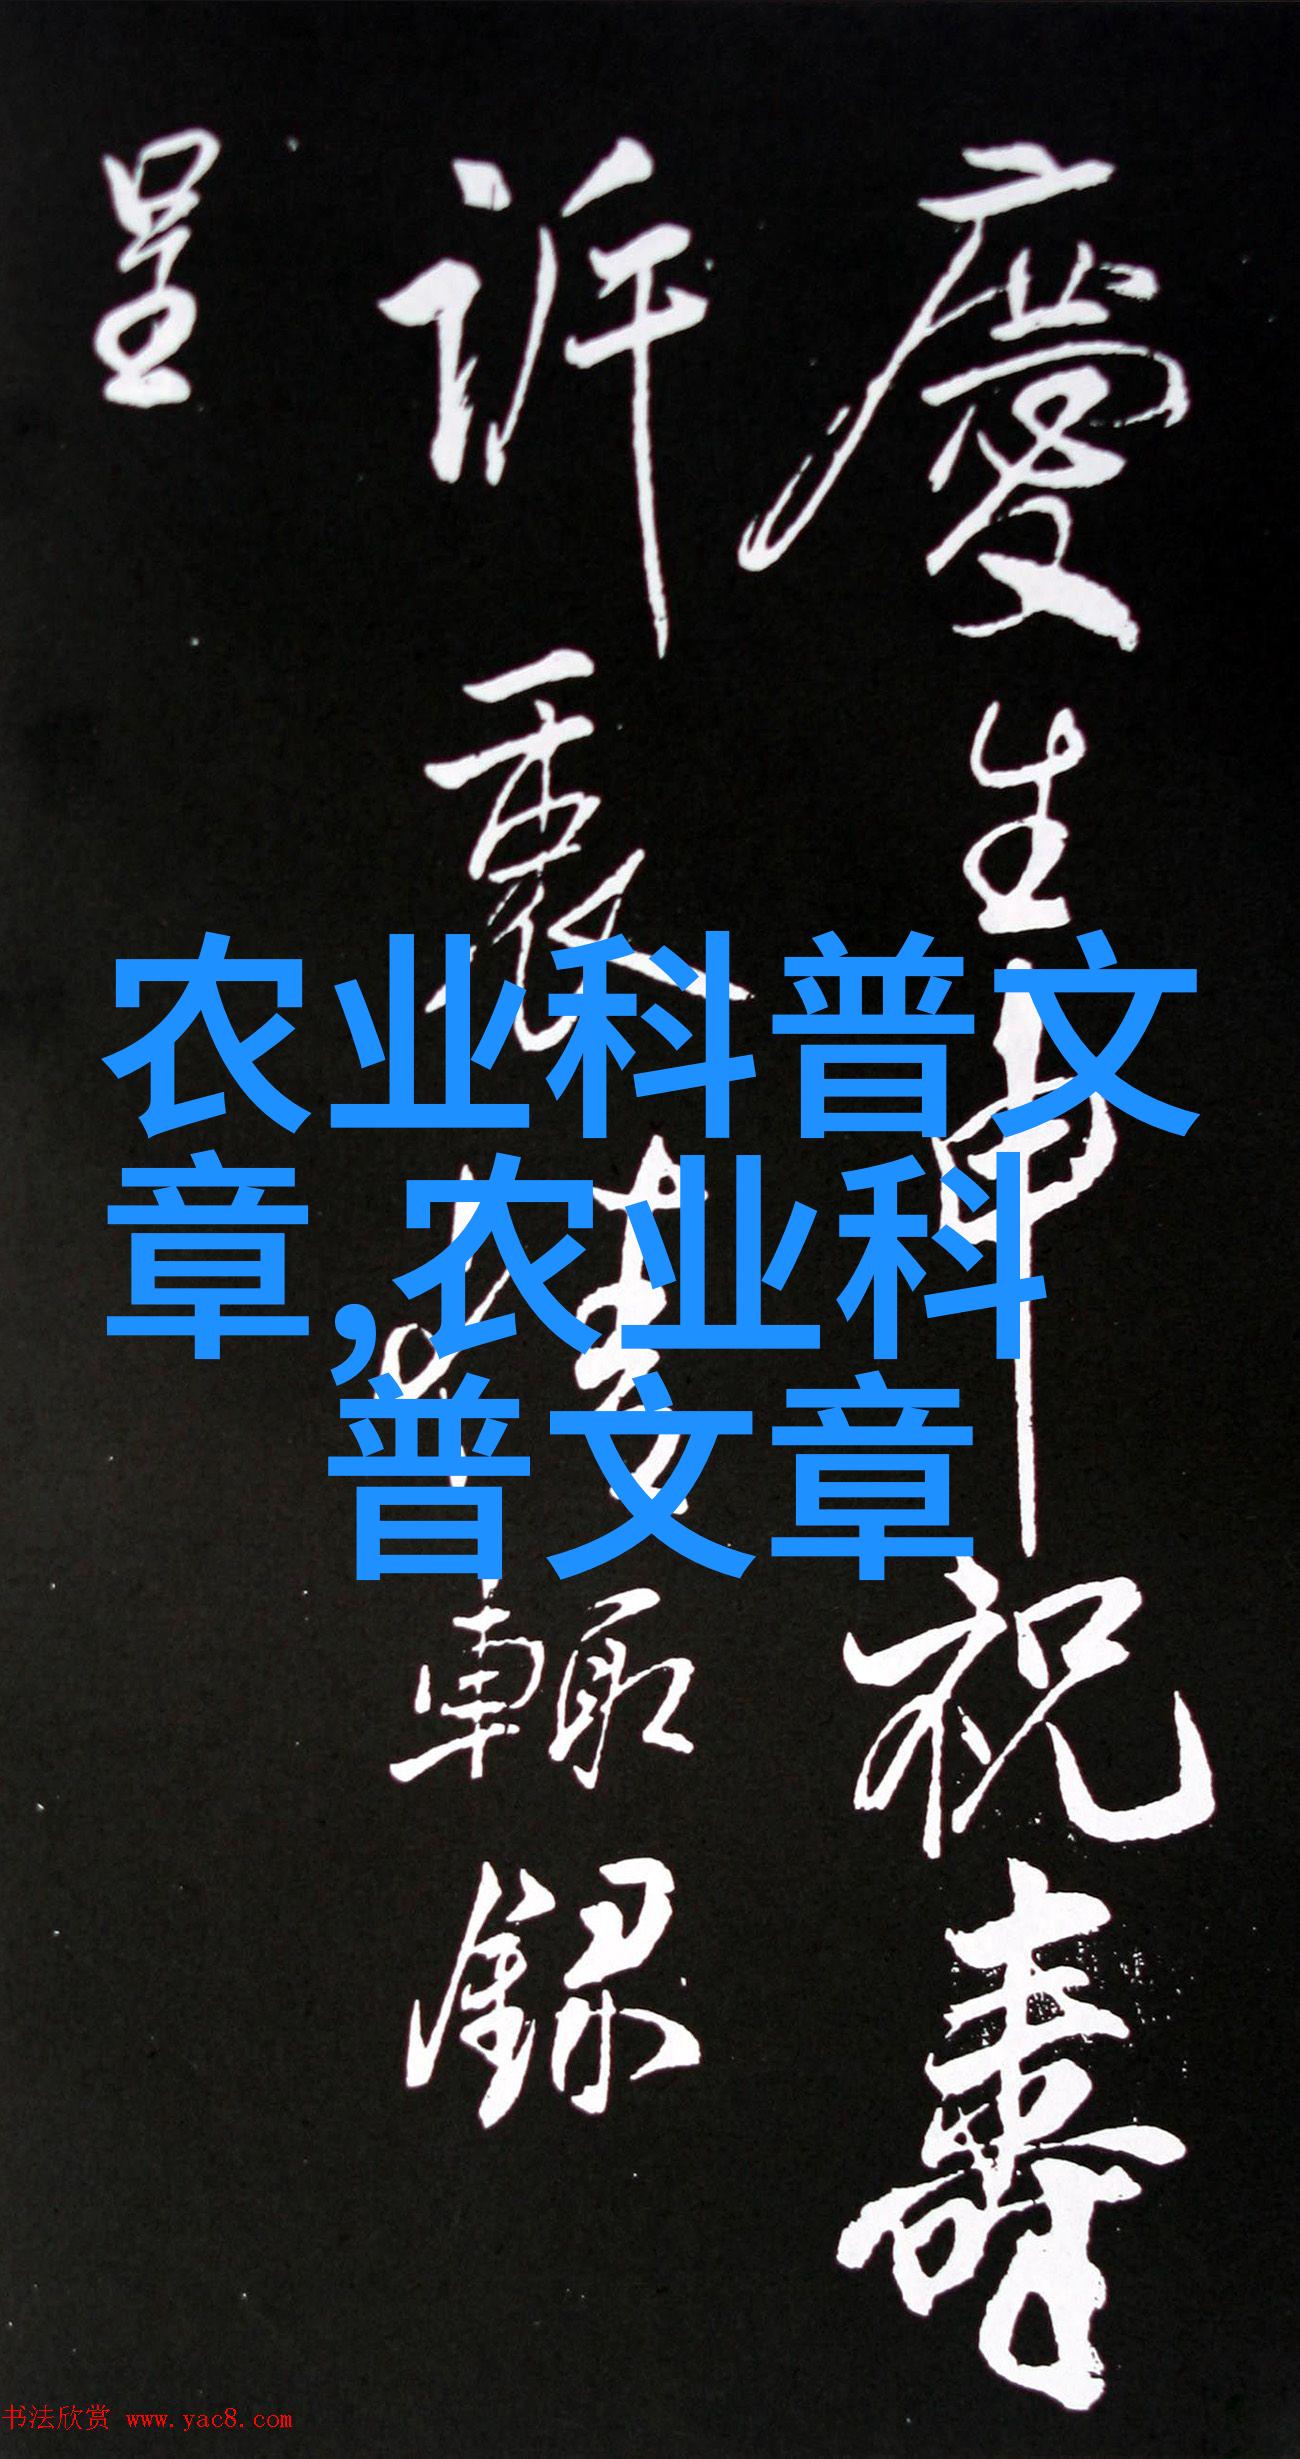 慶生申祝壽
訴衷情輒録
呈
农业科普文
章,农业科
普文章
书法欣赏 www.yac8.com